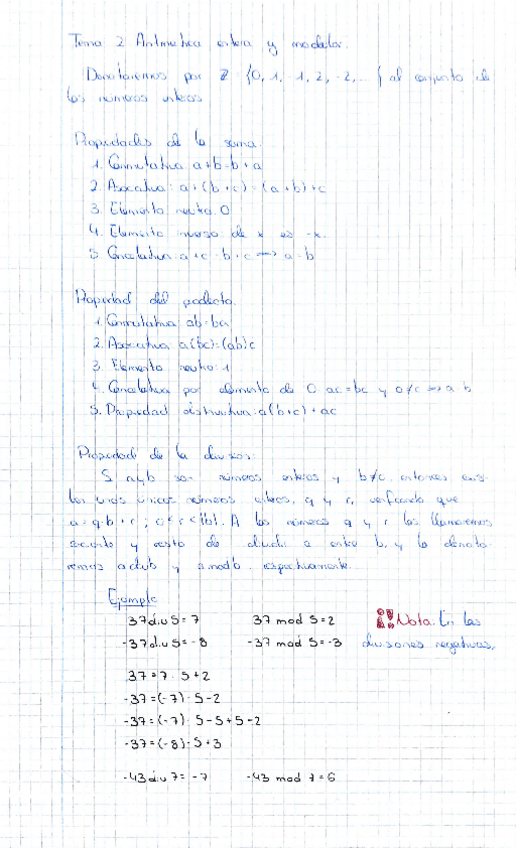 Tema 2 Aritmetica entera y modular.
Denotaremos por Z = {0, 1, -1, 2, -2, ... } al conjunto de
los números enteros
Propiedades de la suma:
1. Conmutativa a+b=b+a
2. Asociativa: a+(b+c)=(a+b)+c
3. Elemento neutro: 0
4. Elemento inverso de x es -x.
5. Cancelativa a+c=b+c => a=b
Propiedad del producto.
1. Conmutativa ab=ba
2. Asociativa a(bc)=(ab)c
3. Elemento neutro: 1
4. Cancelativa por elemento de 0 ac=bc y 0≠c => a b
5. Propiedad distributiva: a(b+c)+ac
Propiedad de la division:
Si a y b son números enteros y b≠c, entonces exis-
ten unos únicos números enteros, q y r, verificando que
a=q·b+r; 0≤r<|b|. A los números q y r los llamaremos
cociente y resto de dividir a entre b, y lo denota-
remos a div b y a mod b, respectivamente.
Ejemplo
37 div 5 = 7 37 mod 5 = 2 ¡! Nota: En las
-37 div 5 = -8 -37 mod 5 = -3 divisiones negativas,
37 = 7 · 5 + 2
-37 = (-7) · 5 - 2
-37 = (-7) · 5 - 5 + 5 - 2
-37 = (-8) · 5 + 3
-43 div 7 = -7 -43 mod 7 = 6